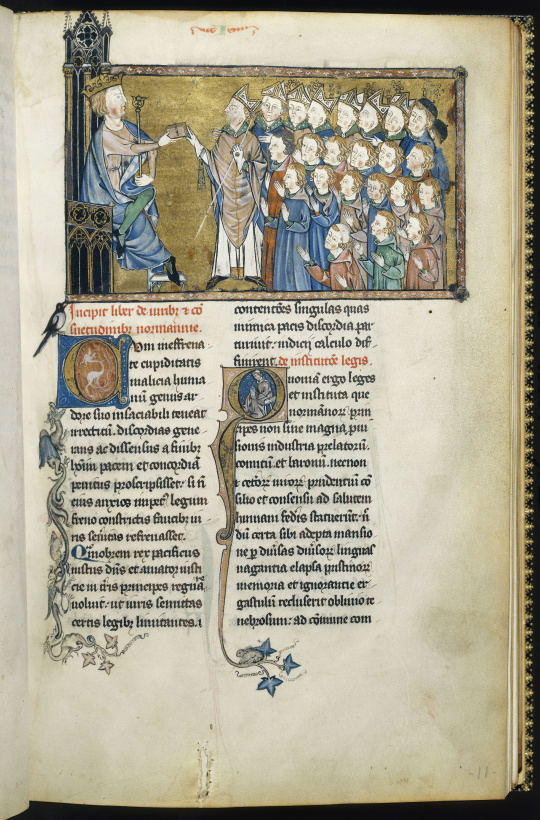 Incipit liber de iuribꝫ ⁊ cō
suetudinibꝫ normannie.
Cum ineffrena
te cupiditatis
malicia huma
nū genus ar
dore suo insaciabili teneat
irretitū. discordias gene
rans ac dissensus a finibꝫ
hoīm pacem et concordiā
penitus proscripsisset. si n̄
eius anxios impetꝰ legum
freno constrictis faucibꝫ iu
ris seuitas refrenasset.
Qm̄obrem rex pacificus
iustus dn̄s et amator iusti
cie in t̄ris principes regna re
uoluit. ut iuris seuitas
certis legibꝫ limitantes. i
contentōes singulas quas
inimica pacis discordia par
turiunt. iudicij calculo dif
finirent. de institutōe legis.
Quoniā ergo leges
et instituta que
normānorū prin
cipes non sine magna pui
sionis industria prelatorū.
comitū et baronū. necnon
⁊ ceterorū uirorū prudentiū cō
silio et consensu ad salutem
humani federis statuerūt. n̄
dū certa sibi adepta mansio
ne ꝑ diuersas diuersorū linguas
uagantia elapsa pristinorū
memoria et ignorantie er
gastulū recluserit obliuio te
nebrosum. ad cōmune com
11